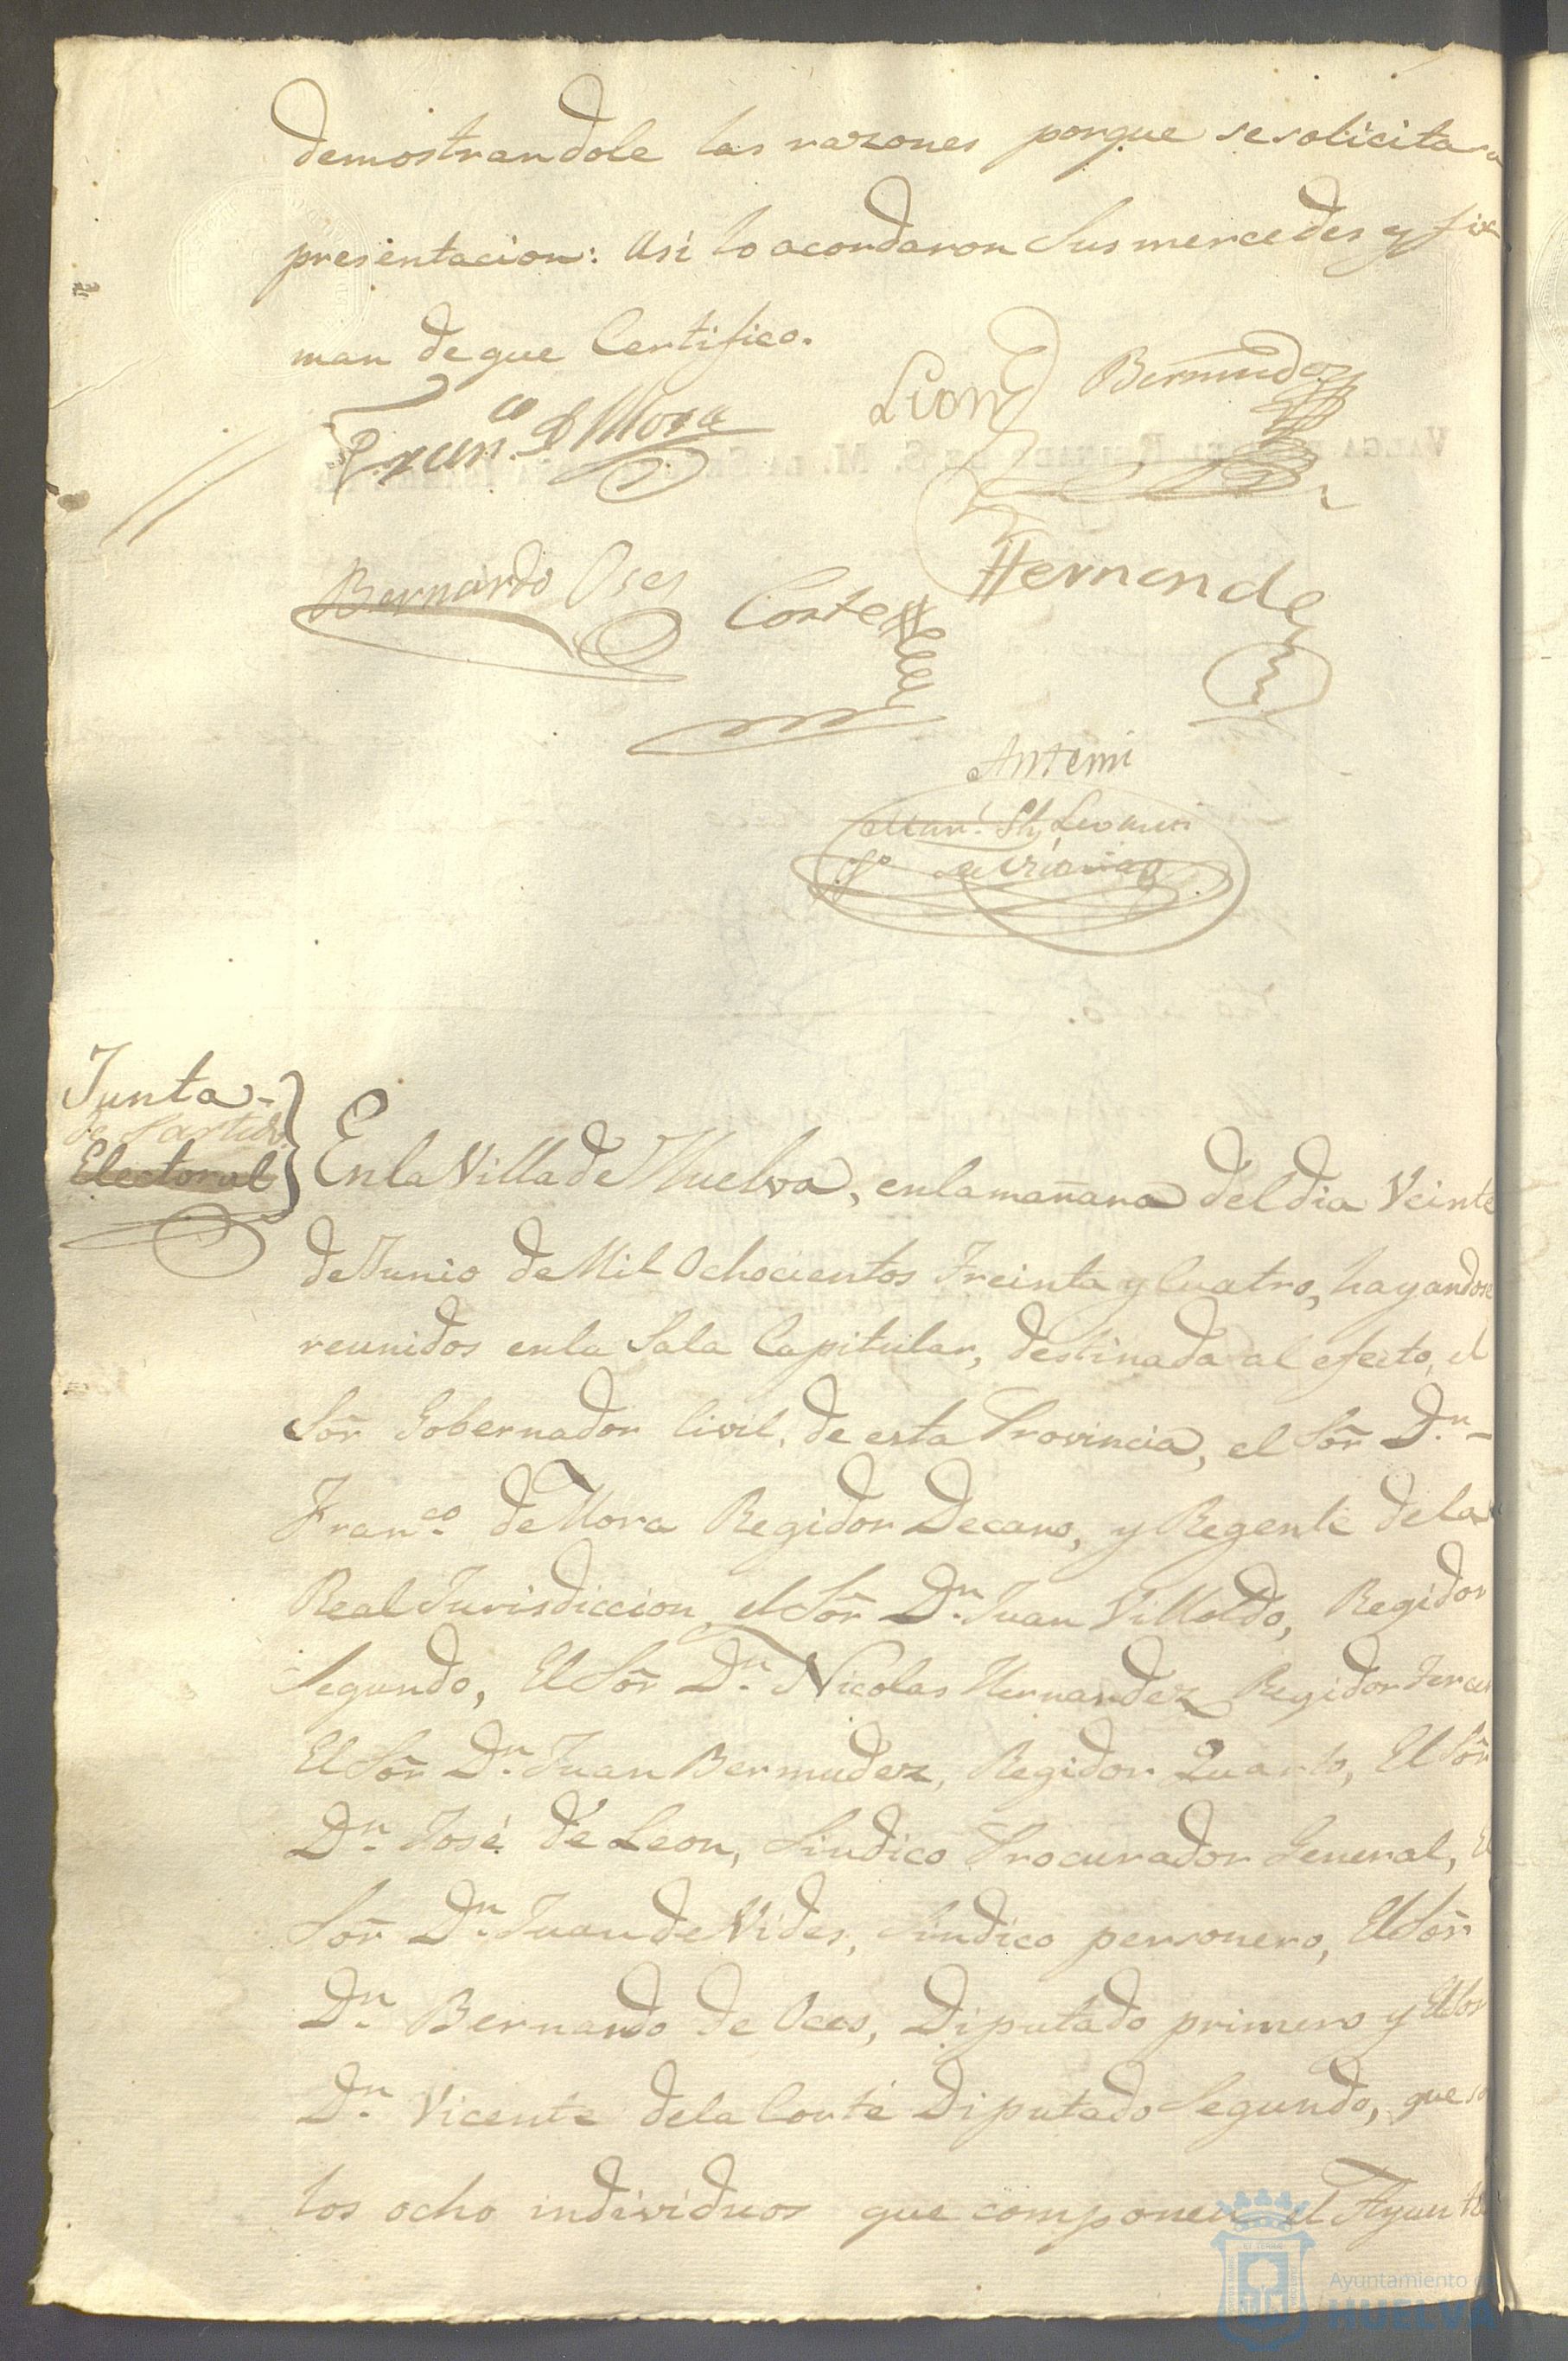 demostrandole las razones porque se solicita
presentacion: Asi lo acordaron Sus mercedes y fir
man de que Certifico.
Fran.co D Mora
Leon
Bermudez
Bernardo Oses
Corte
Hernandez
Antemi
Junta
de Partido
Electoral
En la Villa de Huelva, en la mañana del dia Veinte
de Junio de Mil Ochocientos Treinta y Cuatro, hayandose
reunidos en la Sala Capitular, destinada al efecto, el
Sõr Gobernador Civil, de esta Provincia, el Sõr D.n
Fran.co de Mora Regidor Decano, y Regente de la
Real Jurisdiccion, el Sõr D.n Juan Villoldo, Regidor
Segundo, El Sõr D.n Nicolas Hernandez Regidor Tercer
El Sõr D.n Juan Bermudez, Regidor Quarto, El Sõr
D.n José de Leon, Sindico Procurador General, El
Sõr D.n Juan de Vides, Sindico personero, El Sõr
D.n Bernardo de Oces, Diputado primero y El Sõr
D.n Vicente de la Corte Diputado Segundo, que so
los ocho individuos que componen el Ayunta
Ayuntamiento de
HUELVA